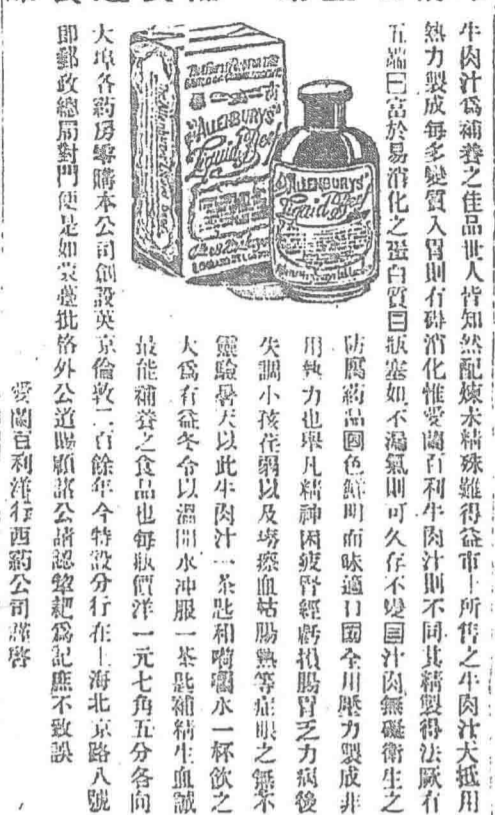 牛肉汁爲補養之佳品世人皆知然配煉未精殊難得益市上所售之牛肉汁大抵用
熱力製成每多變質入胃則有礙消化惟愛蘭百利牛肉汁則不同其精製得法厥有
五端㊀富於易消化之蛋白質㊁瓶塞如不漏氣則可久存不變㊂汁肉無礙衛生之
防腐藥品㊃色鮮明而味適口㊄全用壓力製成非
用熱力也舉凡精神困疲腎經虧損腸胃乏力病後
失調小孩荏弱以及癆瘵血枯腸熱等症眼之無不
靈驗暑天以此牛肉汁一茶匙和荷囒水一杯飲之
大爲有益冬令以溫開水冲服一茶匙補精生血誠
最能補養之食品也每瓶價洋一元七角五分各向
大埠各葯房零購本公司創設英京倫敦二百餘年今特設分行在上海北京路八號
即郵政總局對門便是如蒙躉批格外公道賜顧諸公請認犂耙爲記庶不致誤
愛蘭百利洋行西葯公司謹啓
ALLENBURYS
Liquid Beef
ALLENBURYS'
Liquid Beef